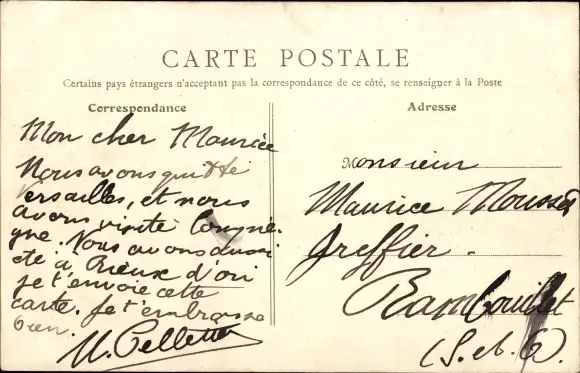 CARTE POSTALE
Certains pays étrangers n'acceptant pas la correspondance de ce côté, se renseigner à la Poste
Correspondance
Mon cher Maurice
Nous avons quitté
Versailles, et nous
avons visité Compiè-
gne. Nous avons aussi
été à Rieux d'où
je t'envoie cette
carte. Je t'embrasse
bien.
Adresse
Monsieur
Maurice
Greffier.
Rambouillet
(S. et O.)